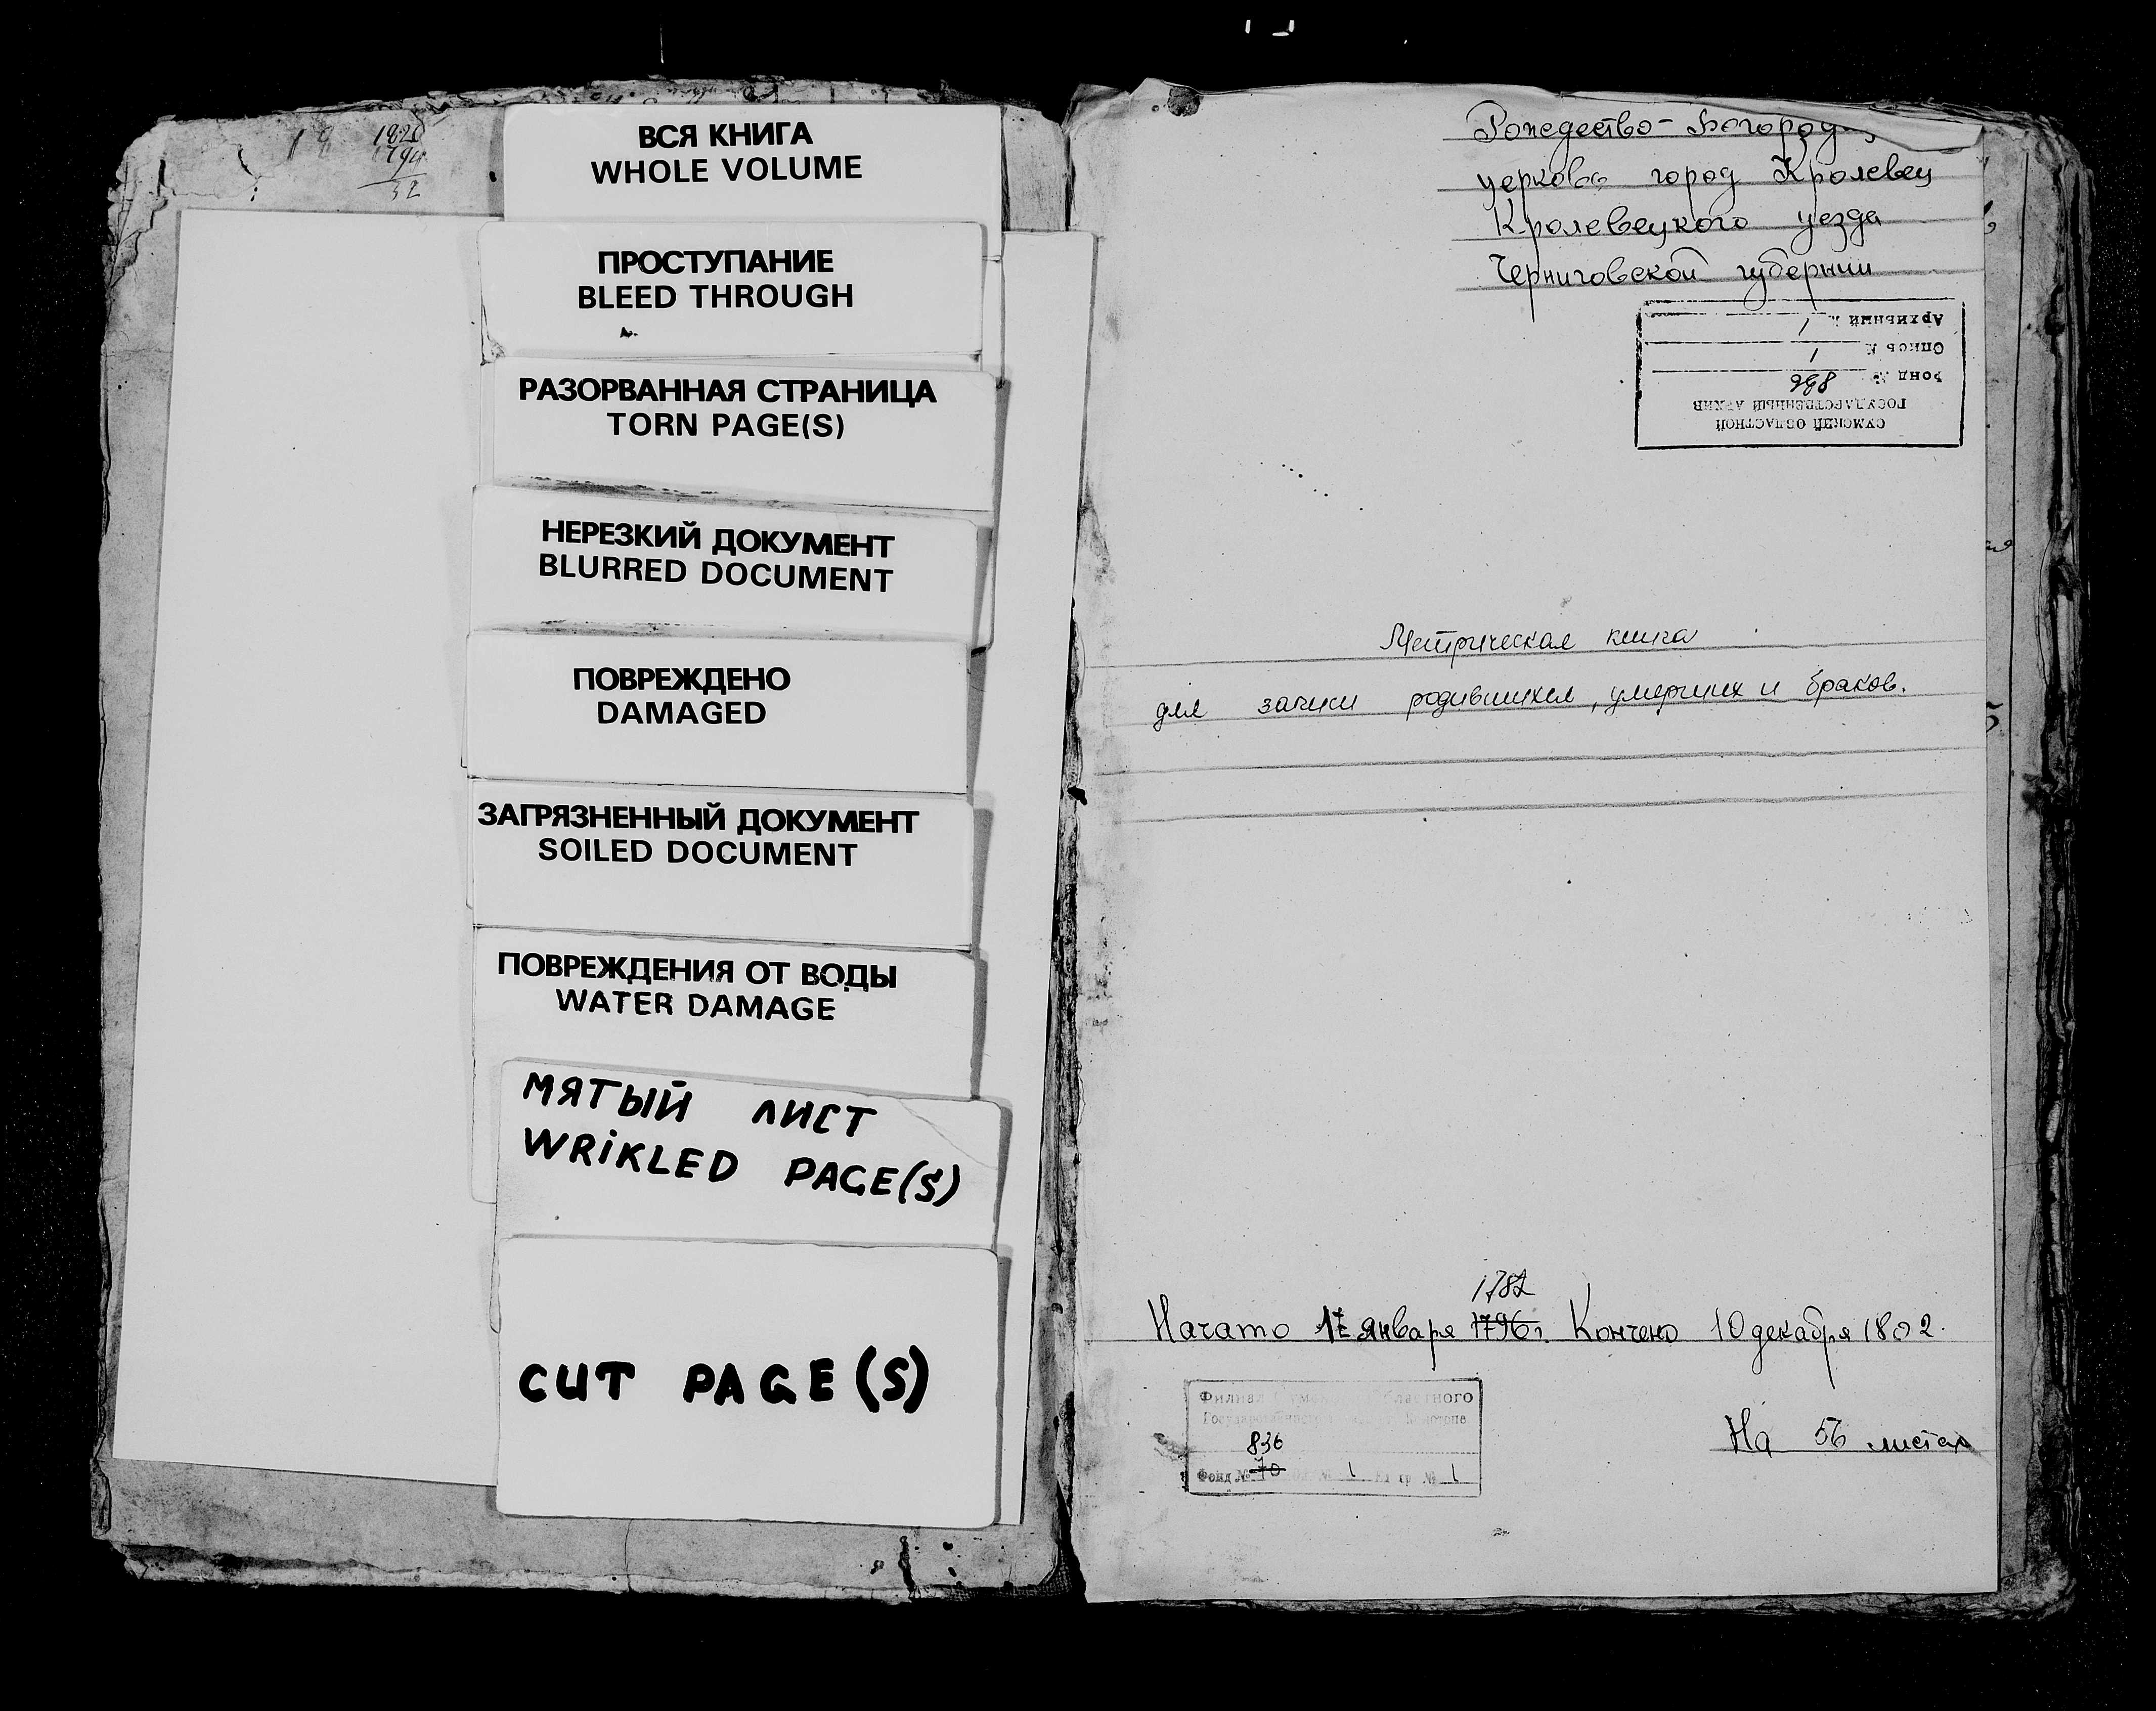 1826
1794
32
ВСЯ КНИГА
WHOLE VOLUME
ПРОСТУПАНИЕ
BLEED THROUGH
РАЗОРВАННАЯ СТРАНИЦА
TORN PAGE(S)
НЕРЕЗКИЙ ДОКУМЕНТ
BLURRED DOCUMENT
ПОВРЕЖДЕНО
DAMAGED
ЗАГРЯЗНЕННЫЙ ДОКУМЕНТ
SOILED DOCUMENT
ПОВРЕЖДЕНИЯ ОТ ВОДЫ
WATER DAMAGE
МЯТЫЙ ЛИСТ
WRIKLED PAGE(S)
CUT PAGE(S)
Рождество-Богород
церковь город Кролевец
Кролевецкого уезда
Черниговской губернии
СУМСКИЙ ОБЛАСТНОЙ
ГОСУДАРСТВЕННЫЙ АРХИВ
Фонд № 836
Опись № 1
Архивный № 1
Метрическая книга
для записи родившихся, умерших и браков.
1782
Начато января 1796 г. Кончено 10 декабря 1802.
На 56 листах
Филиал Сумского Областного
836
Фонд № 70 № 1 № 1